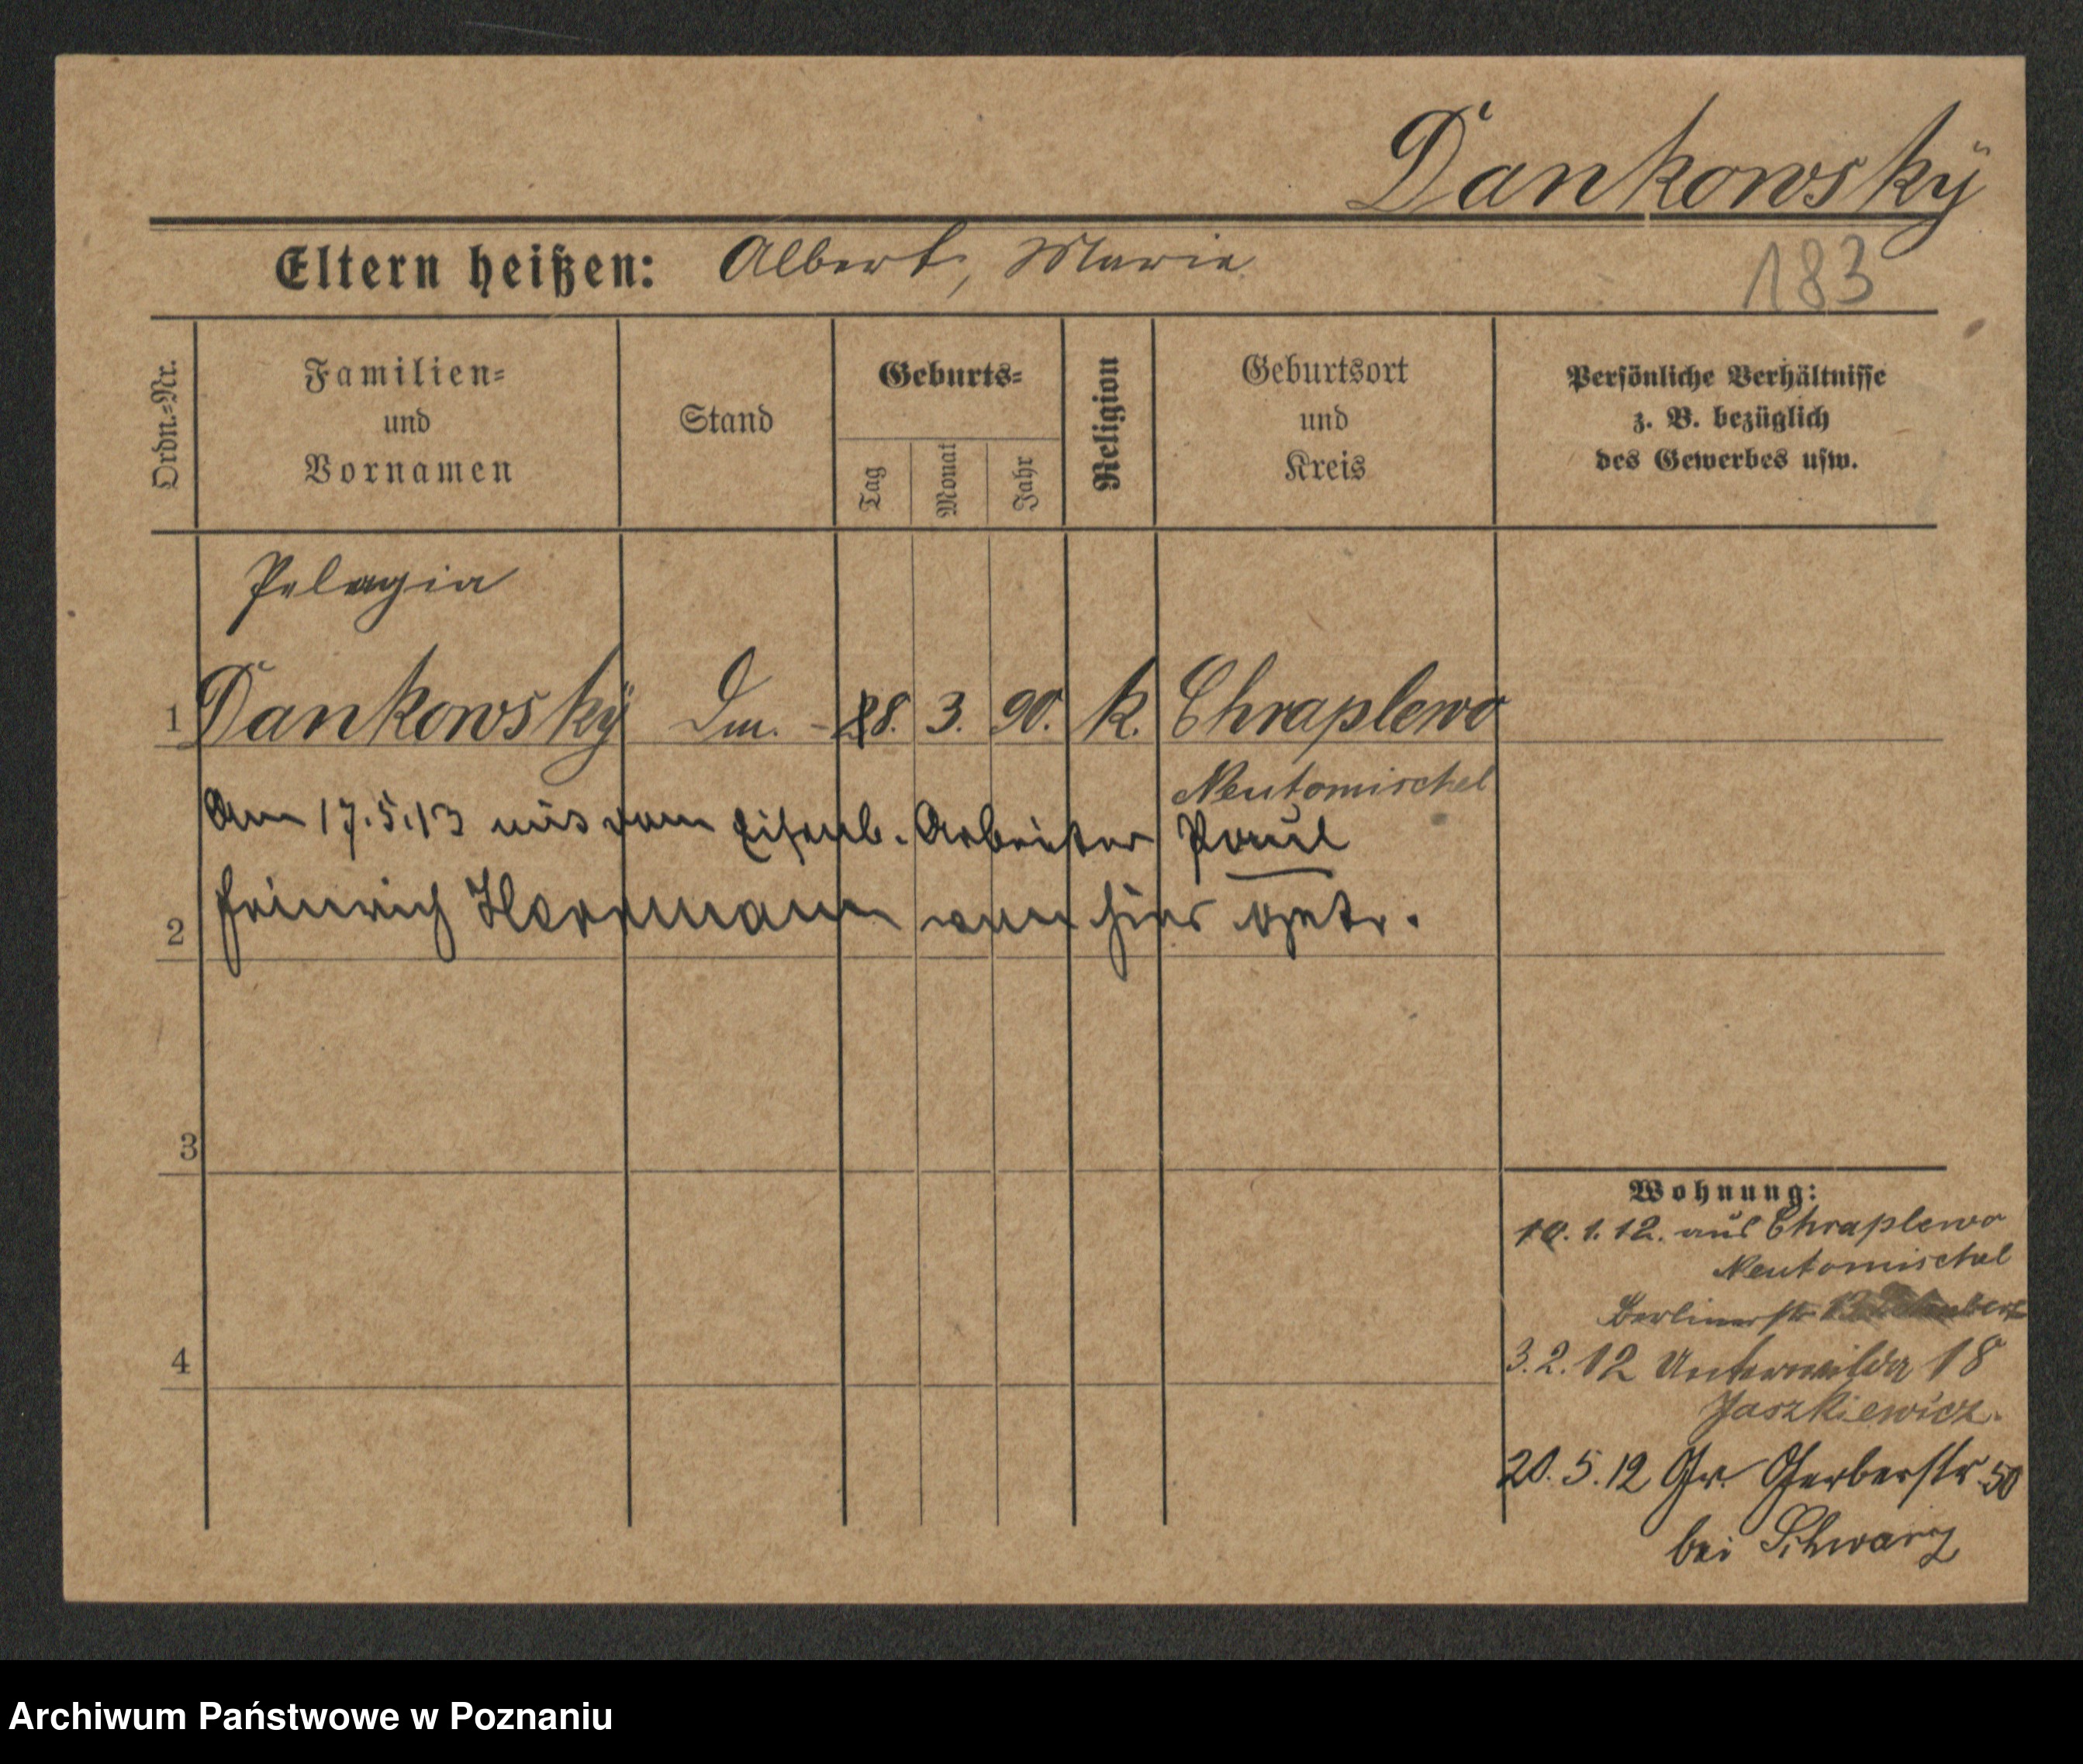 Dankowskÿ
Eltern heißen: Albert, Marie
183
Ordn.-Nr.
Familien-
und
Vornamen
Stand
Geburts-
Tag
Monat
Jahr
Religion
Geburtsort
und
Kreis
Persönliche Verhältnisse
z. B. bezüglich
des Gewerbes usw.
Pelagia
1 Dankowskÿ 8. 3. 90. k. Chraplewo
Neutomischel
Am 17.5.13 mit dem Eisenb. Arbeiter Paul
2 Heinrich Herrmann von hier getr.
3
4
Wohnung:
10. 1. 12. aus Chraplewo
Neutomischel
Berlinerstr
3. 2. 12 Unterwilda 18
Jaszkiewicz.
20. 5. 12 Gr. Gerberstr 50
bei Schwarz
Archiwum Państwowe w Poznaniu